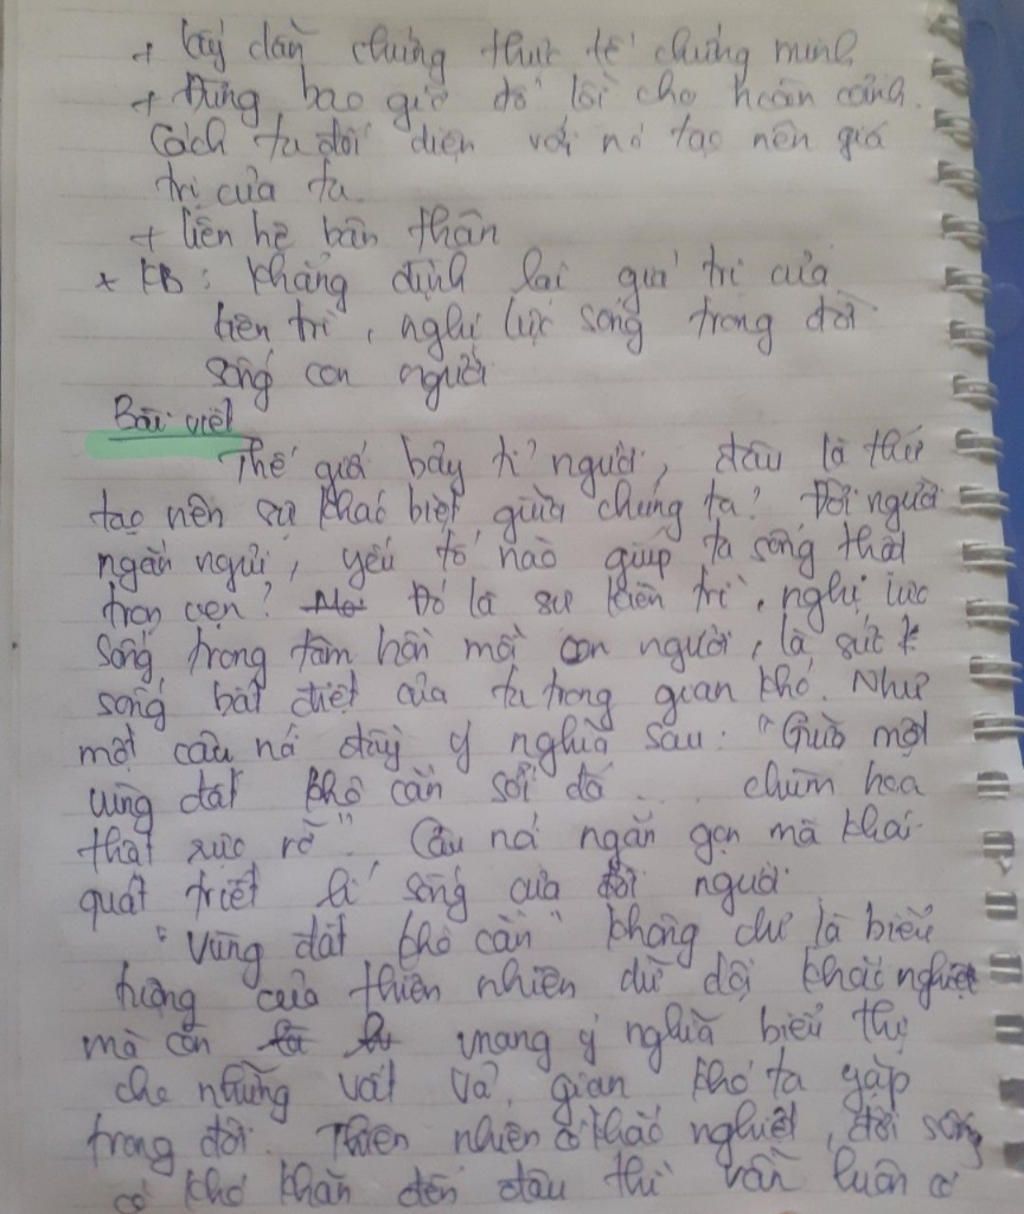 + Lấy dẫn chứng thực tế chứng minh
+ Đừng bao giờ đổ lỗi cho hoàn cảnh.
Cách ta đối diện với nó tạo nên giá
trị của ta
+ liên hệ bản thân
* KB: Khẳng định lại giá trị của
kiên trì, nghị lực sống trong đời
sống con người
Bài viết
Thế giới bảy tỉ người, đâu là thứ
tạo nên sự khác biệt giữa chúng ta? Đời người
ngắn ngủi, yếu tố nào giúp ta sống thật
trọn vẹn? Đó là sự kiên trì, nghị lực
sống trong tâm hồn mỗi con người, là sức
sống bất diệt của ta trong gian khó. Như
một câu nói đầy ý nghĩa sau: "Giữa một
vùng đất khô cằn sỏi đá ... chùm hoa
thật rực rỡ". Câu nói ngắn gọn mà khái
quát triết lí sống của đời người.
"Vùng đất khô cằn" không chỉ là biểu
tượng của thiên nhiên dữ dội khắc nghiệt
mà còn mang ý nghĩa biểu thị
cho những vất vả, gian khó ta gặp
trong đời. Thiên nhiên có khắc nghiệt, đời sống
có khó khăn đến đâu thì vẫn luôn có